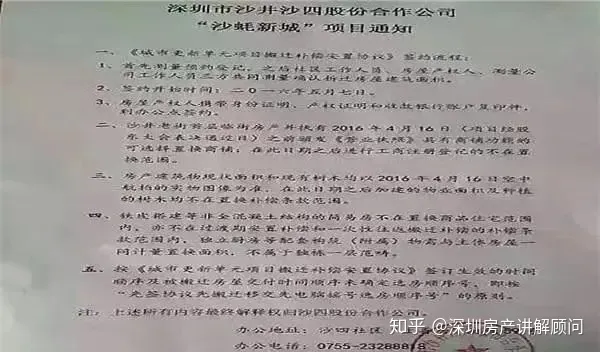 深圳市沙井沙四股份合作公司
“沙蚝新城”项目通知
一、《城市更新单元项目搬迁补偿安置协议》签约流程：
1、首先测量预约登记，之后社区工作人员、房屋产权人、测量公
司工作人员三方共同测量确认拆迁房屋建筑面积。
2、签约开始时间：二0一六年五月七日。
3、房屋产权人携带身份证明、产权证明和收款银行账户复印件，
到办公点签约。
二、沙井老街首层临街房产并扶有2016年4月16日（项目经股
东大会表决通过日）之前颁发《营业执照》具有商铺功能的
可选择置换商铺；在此日期之后进行工商注册登记的不在置
换范围。
三、房产建筑物现状面积和现有树木均以2016年4月16日空中
航拍的实物图像为准，在此日期之后加建的物业面积及种植
的树木均不在置换补偿条款范围。
四、铁皮搭建等非全混凝土结构的简易房不在置换商品住宅范围
内，亦不在过渡期安置补偿和一次性往返搬迁补偿的补偿条
款范围内，独立厨房等配套构筑（附属）物需与主体房屋一
同计量置换面积，不属于独栋一层范畴。
五、按《城市更新单元项目搬迁补偿安置协议》签订生效的时间
顺序及被搬迁房屋交付时间顺序来确定选房顺序号，即按
“先签协议先搬迁移交先电脑摇号选房顺序号”的原则。
注：上述所有内容最终解释权归沙四股份合作公司。
办公地址：沙四社区
办公电话：0755-23288818
知乎 @深圳房产讲解顾问